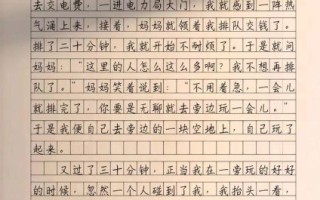 去交电费，一进电力局大门，我就感到一阵热
气涌上来，接着，妈妈就领着我排队交钱了。
排了二十分钟，我就开始不耐烦了。于是就问
妈妈：“这里的人怎么这么多啊？我不想再排
队了。”妈妈笑着说到：“不用着急，一会儿
就排完了，你要是无聊就去旁边玩一会儿。”
于是我便自己去旁边的一块空地上，自己玩了
起来。
又过了三十分钟，正当我在一旁玩的好好
的时候，忽然一个人碰到了我，我抬头一看，